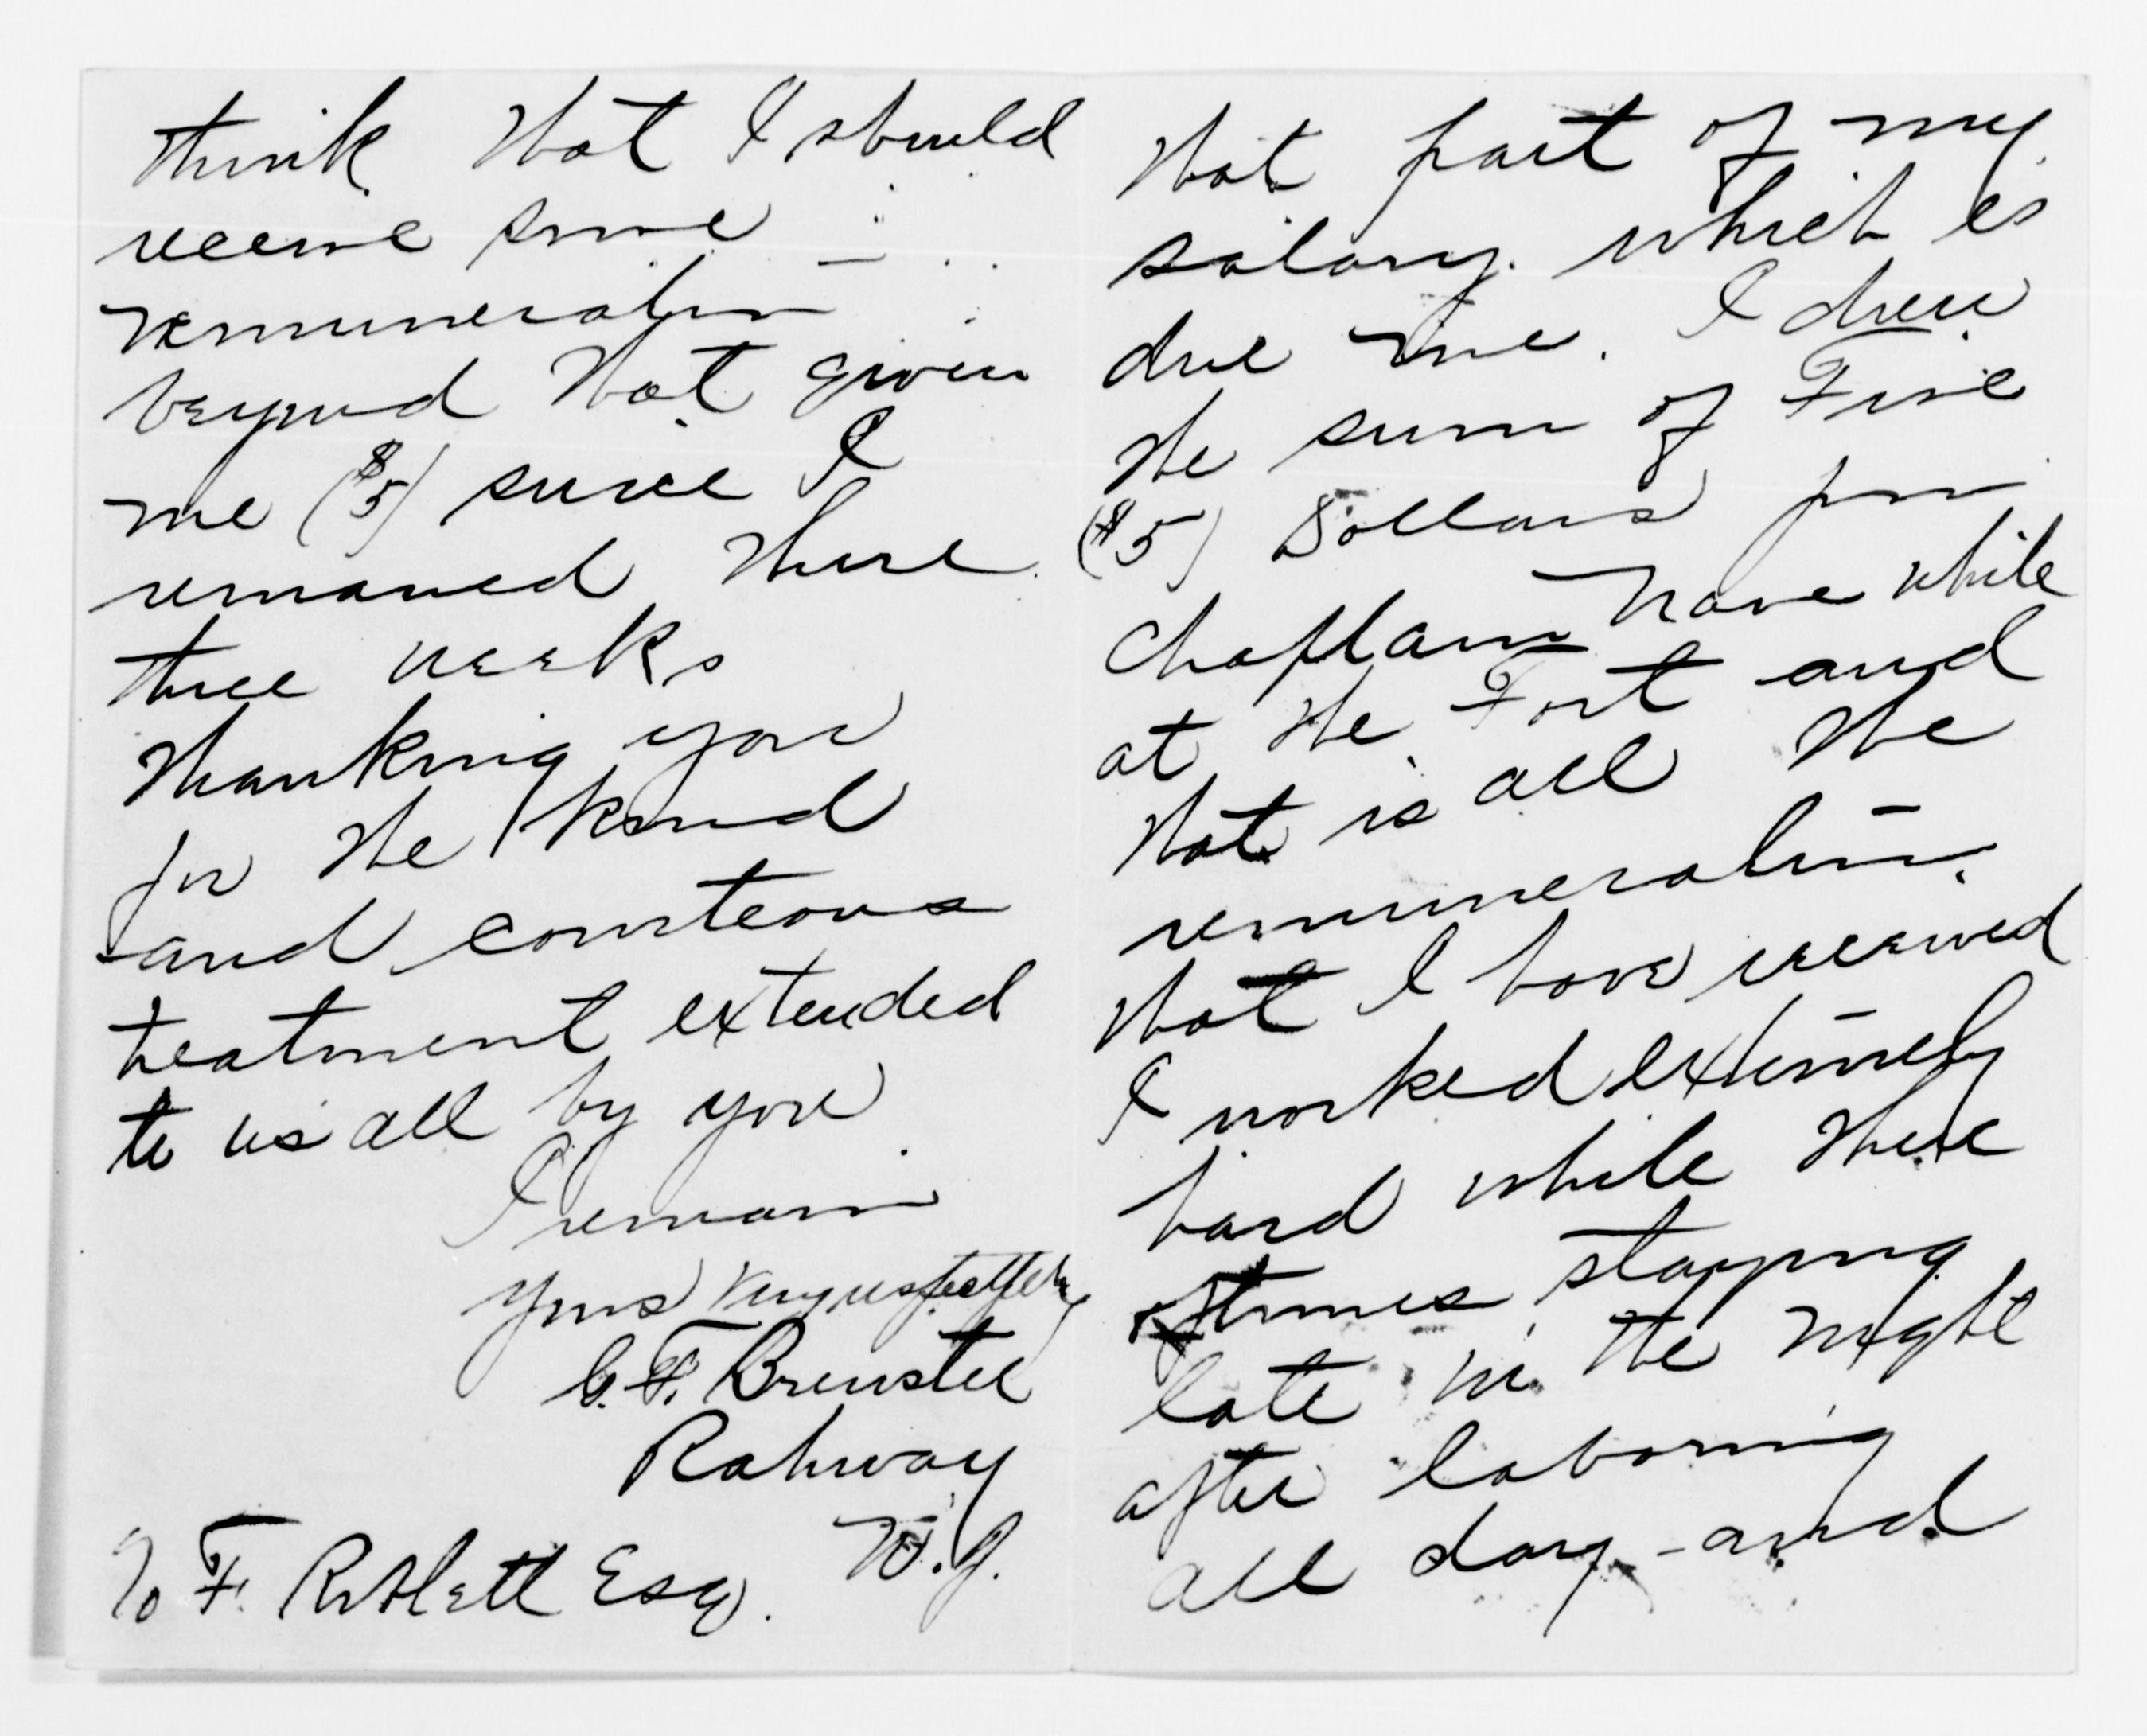 that part of my
salary which is
due me. I drew
the sum of Five
($5) Dollars from
Chaplain Nave while
at the Fort and
that is all the
remuneration
that I have received
I worked extremely
hard while there
oftimes staying
late in the night
after laboring
all day and
think that I should
receive some
remuneration
beyond that given
me ($5) since I
remained there
three weeks
Thanking you
for the kind
and courteous
treatment extended
to us all by you
I remain
Yours very respectfully
G. F. Brewster
Rahway
N.J.
To F. Esq.